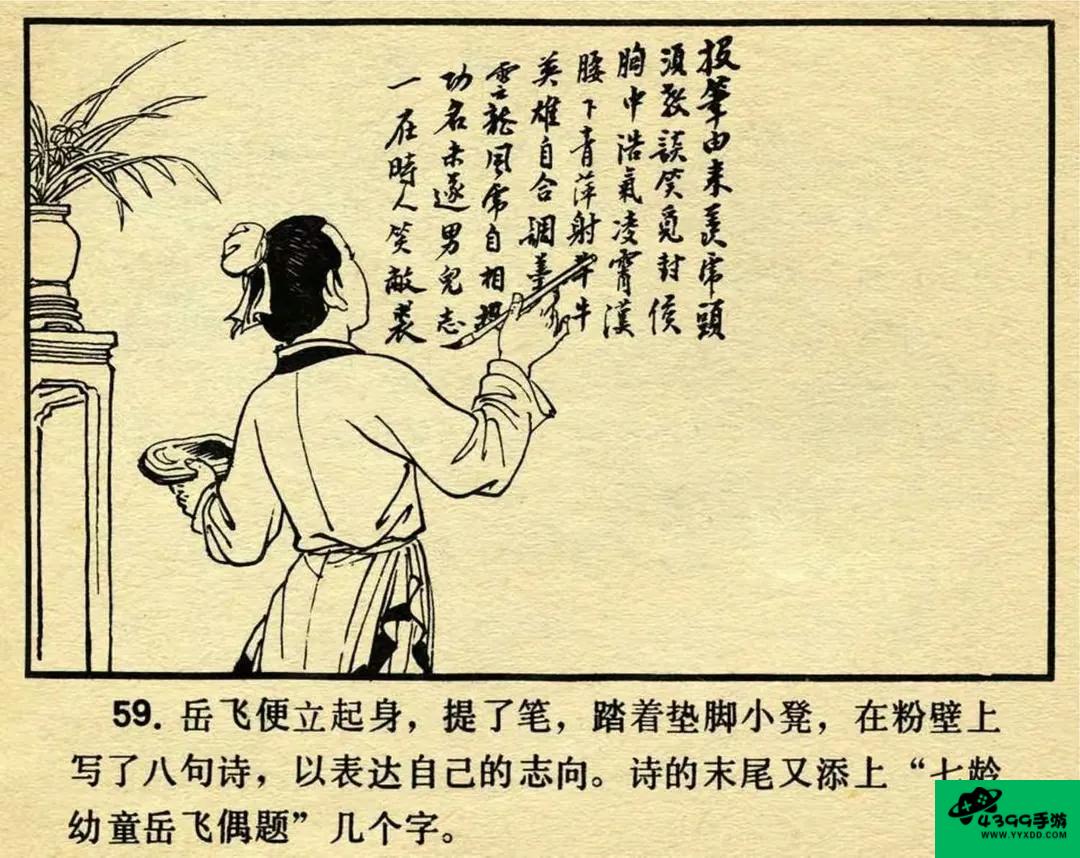 投筆由來羨虎頭
須教談笑覓封侯
胸中浩氣凌霄漢
腰下青萍射斗牛
英雄自合調羹
雲龍風虎自相
功名未遂男兒志
一任時人笑敝裘
59. 岳飞便立起身，提了笔，踏着垫脚小凳，在粉壁上
写了八句诗，以表达自己的志向。诗的末尾又添上“七龄
幼童岳飞偶题”几个字。
4399手游
WWW.YYXDD.COM